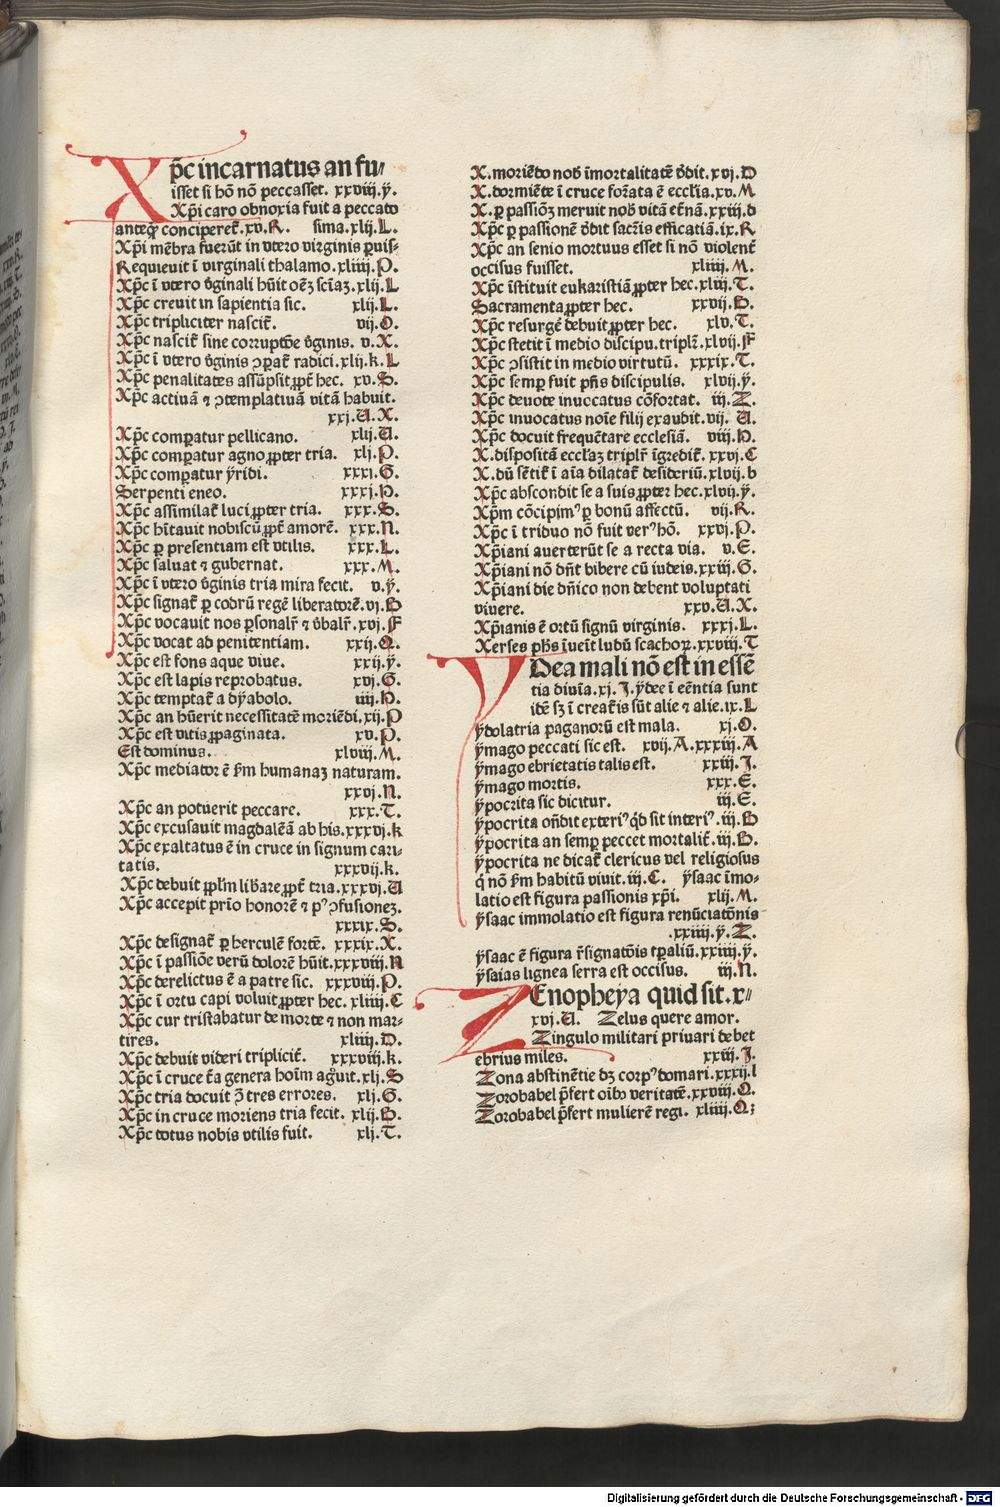 Xp̄c incarnatus an fu⸗
isset si hō nō peccasset. xxviij.ẏ.
Xp̄i caro obnoxia fuit a peccato
anteqͣ conciperet̄.xv.R. sima.xlij.L.
Xp̄i mēbra fuerūt in vtero virginis puis⸗
Requieuit ī virginali thalamo.xliiij.P.
Xp̄c ī vtero v̄ginali hūit oēꝫ scīaꝫ.xlij.L
Xp̄c creuit in sapientia sic. xlij.L.
Xp̄c tripliciter nascit̄. vij.O.
Xp̄c nascit̄ sine corruptōe v̄ginis. v.X.
Xp̄c ī vtero v̄ginis ꝯparat̄ radici.xlij.k.L
Xp̄c penalitates assūpsit ꝓpt̄ hec. xv.S.
Xp̄c actiuā ⁊ ꝯtemplatiuā vitā habuit.
xxj.U.X.
Xp̄c comꝑatur pellicano. xlij.U.
Xp̄c comꝑatur agno ꝓpter tria. xlj.P.
Xp̄c comꝑatur ẏridi. xxxj.G.
Serpenti eneo. xxxj.H.
Xp̄c assimilat̄ luci ꝓpter tria. xxx.S.
Xp̄c hītauit nobiscū ꝓpt̄ amorē. xxx.N.
Xp̄c ꝑ presentiam est vtilis. xxx.L.
Xp̄c saluat ⁊ gubernat. xxx.M.
Xp̄c ī vtero v̄ginis tria mira fecit. v.ẏ.
Xp̄c signat̄ ꝑ codrū regē liberatorē.vj.B
Xp̄c vocauit nos ꝑsonalr̄ ⁊ v̄balr̄.xvj.F
Xp̄c vocat ad penitentiam. xxij.Q.
Xp̄c est fons aque viue. xxij.ẏ.
Xp̄c est lapis reprobatus. xvj.G.
Xp̄c temptat̄ a dẏabolo. iiij.H.
Xp̄c an hūerit necessitatē moriēdi.xij.P
Xp̄c est vitis ꝓpaginata. xv.P.
Est dominus. xlviij.M.
Xp̄c mediator ē s̄m humanaꝫ naturam.
xxvj.N.
Xp̄c an potuerit peccare. xxx.T.
Xp̄c excusauit magdalēā ab his.xxxvj.k
Xp̄c exaltatus ē in cruce in signum cari⸗
tatis. xxxvij.k.
Xp̄c debuit ꝓpl̄m lib̄are ꝓpt̄ tria.xxxvj.U
Xp̄c accepit prīo honorē ⁊ pꝰ ꝯfusioneꝫ.
xxxix.S.
Xp̄c designat̄ ꝑ herculē fortē. xxxix.X.
Xp̄c ī passiōe verū dolorē hūit.xxxviij.N
Xp̄c derelictus ē a patre sic. xxxviij.P.
Xp̄c ī ortu capi voluit ꝓpter hec. xliiij.C
Xp̄c cur tristabatur de morte ⁊ non mar⸗
tires. xliiij.D.
Xp̄c debuit videri triplicit̄. xxxviij.k.
Xp̄c ī cruce t̄a genera hoīm ag̊uit.xlj.S
Xp̄c tria docuit ꝯ̄ tres errores. xlj.G.
Xp̄c in cruce moriens tria fecit. xlij.B.
Xp̄c totus nobis vtilis fuit. xlj.T.
X. moriēdo nob̄ īmortalitatē v̄dit.xvj.D
X. dormiēte ī cruce forata ē eccl'ia.xv.M
X. ꝑ passiōꝫ meruit nob̄ vitā et̄nā.xxiij.d
Xp̄c ꝑ passionē v̄dit sacr̄is efficatiā.ix.R
Xp̄c an senio mortuus esset si nō violent̄
occisus fuisset. xliiij.M.
Xp̄c īstituit eukaristiā ꝓpter hec.xliij.T.
Sacramenta ꝓpter hec. xxvij.B.
Xp̄c resurgē debuit ꝓpter hec. xlv.T.
Xp̄c stetit ī medio discipu. triplr̄.xlvij.F
Xp̄c ꝯsistit in medio virtutū. xxxix.T.
Xp̄c semꝑ fuit pn̄s discipulis. xlvij.ẏ.
Xp̄c deuote inuocatus cōfortat. iij.Z.
Xp̄c inuocatus noīe filij exaudit.vij. U.
Xp̄c docuit frequētare ecclesiā. viij.H.
X. dispositā eccl'aꝫ triplr̄ īgredit̄.xxvj.C
X. dū sētit̄ ī aīa dilatat̄ desideriū.xlvij.b
Xp̄c abscondit se a suis ꝓpter hec.xlvij.ẏ.
Xp̄m cōcipimꝰ ꝑ bonū affectū. vij.R.
Xp̄c ī triduo nō fuit verꝰ hō. xxvj.P.
Xp̄iani auerterūt se a recta via. v.E.
Xp̄iani nō dn̄t bibere cū iudeis.xxiij.G.
Xp̄iani die dn̄ico non debent voluptati
viuere. xxv.U.X.
Xp̄ianis ē ortū signū virginis. xxxj.L.
Xerses ph̄s īueīt ludū scachoꝝ.xxviij.T
YDea mali nō est in essē
tia diuīa.xj. J.ẏdee ī eēntia sunt
idē sꝫ ī creat̄is sūt alie ⁊ alie.ix.L
ẏdolatria paganorū est mala. xj.O.
ẏmago peccati sic est. xvij.A.xxxiij.A
ẏmago ebrietatis talis est. xxiij.J.
ẏmago mortis. xxx.E.
ẏpocrita sic dicitur. iij.E.
ẏpocrita on̄dit exteriꝰ qd̄ sit interiꝰ.iij.B
ẏpocrita an semꝑ peccet mortalit̄.iij.B.
ẏpocrita ne dicat̄ clericus vel religiosus
q̇ nō s̄m habitū viuit.iij.C. ẏsaac īmo⸗
latio est figura passionis xp̄i. xlij.M.
ẏsaac immolatio est figura renūciatōnis
.xxiiij.ẏ.Z.
ẏsaac ē figura r̄signatōis tꝑaliū.xxiiij.ẏ.
ẏsaias lignea serra est occisus. iij.N.
ZEnopheya quid sit.x⸗
xvj.U. Zelus quere amor.
Zingulo militari priuari debet
ebrius miles. xxiij.J.
Zona abstinētie dꝫ corpꝰ domari.xxxij.l
Zorobabel p̄fert oībꝰ veritatē.xxviij.Q.
Zorobabel p̄fert mulierē regi. xliiij.Q;
Digitalisierung gefördert durch die Deutsche Forschungsgemeinschaft - DFG